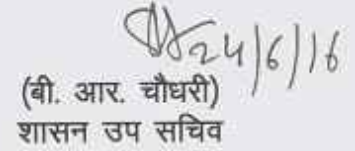 24/6/16
(बी. आर. चौधरी)
शासन उप सचिव